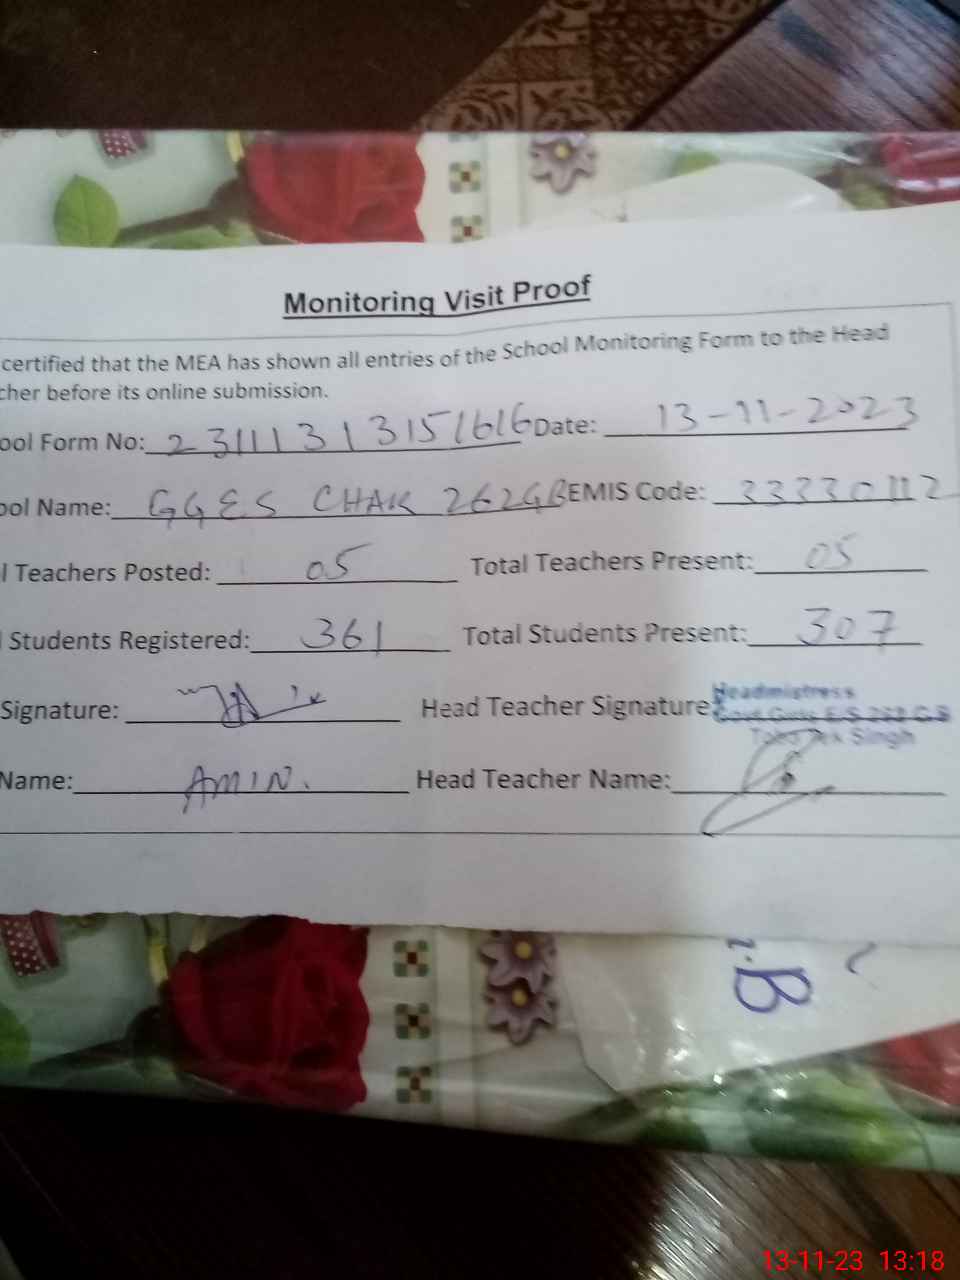 Monitoring Visit Proof
certified that the MEA has shown all entries of the School Monitoring Form to the Head
cher before its online submission.
ool Form No: 23111313151616 Date: 13-11-2023
ool Name: GGES CHAK 262GB EMIS Code: 33330112
l Teachers Posted: 05 Total Teachers Present: 05
Students Registered: 361 Total Students Present: 307
Signature: Head Teacher Signature Headmistress
Singh
Name: AMIN. Head Teacher Name:
B
13-11-23 13:18